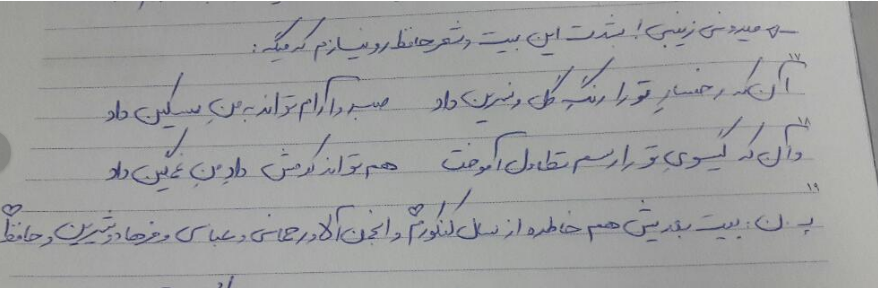 میدونی زینبی! بشدت این بیت و شعر حافظ رو نیازم که میگه:
۱۷
آن که رخسار تو را رنگ گل و نسرین داد صبر و آرام تواند به من مسکین داد
۱۸
وآن که گیسوی تو را رسم تطاول آموخت هم تواند کرمش داد من غمگین داد
۱۹
پ.ن: بیت بعدیش هم خاطره از سال کنکورم و انجمن و عباسی و فرهاد و شیرین و حافظ